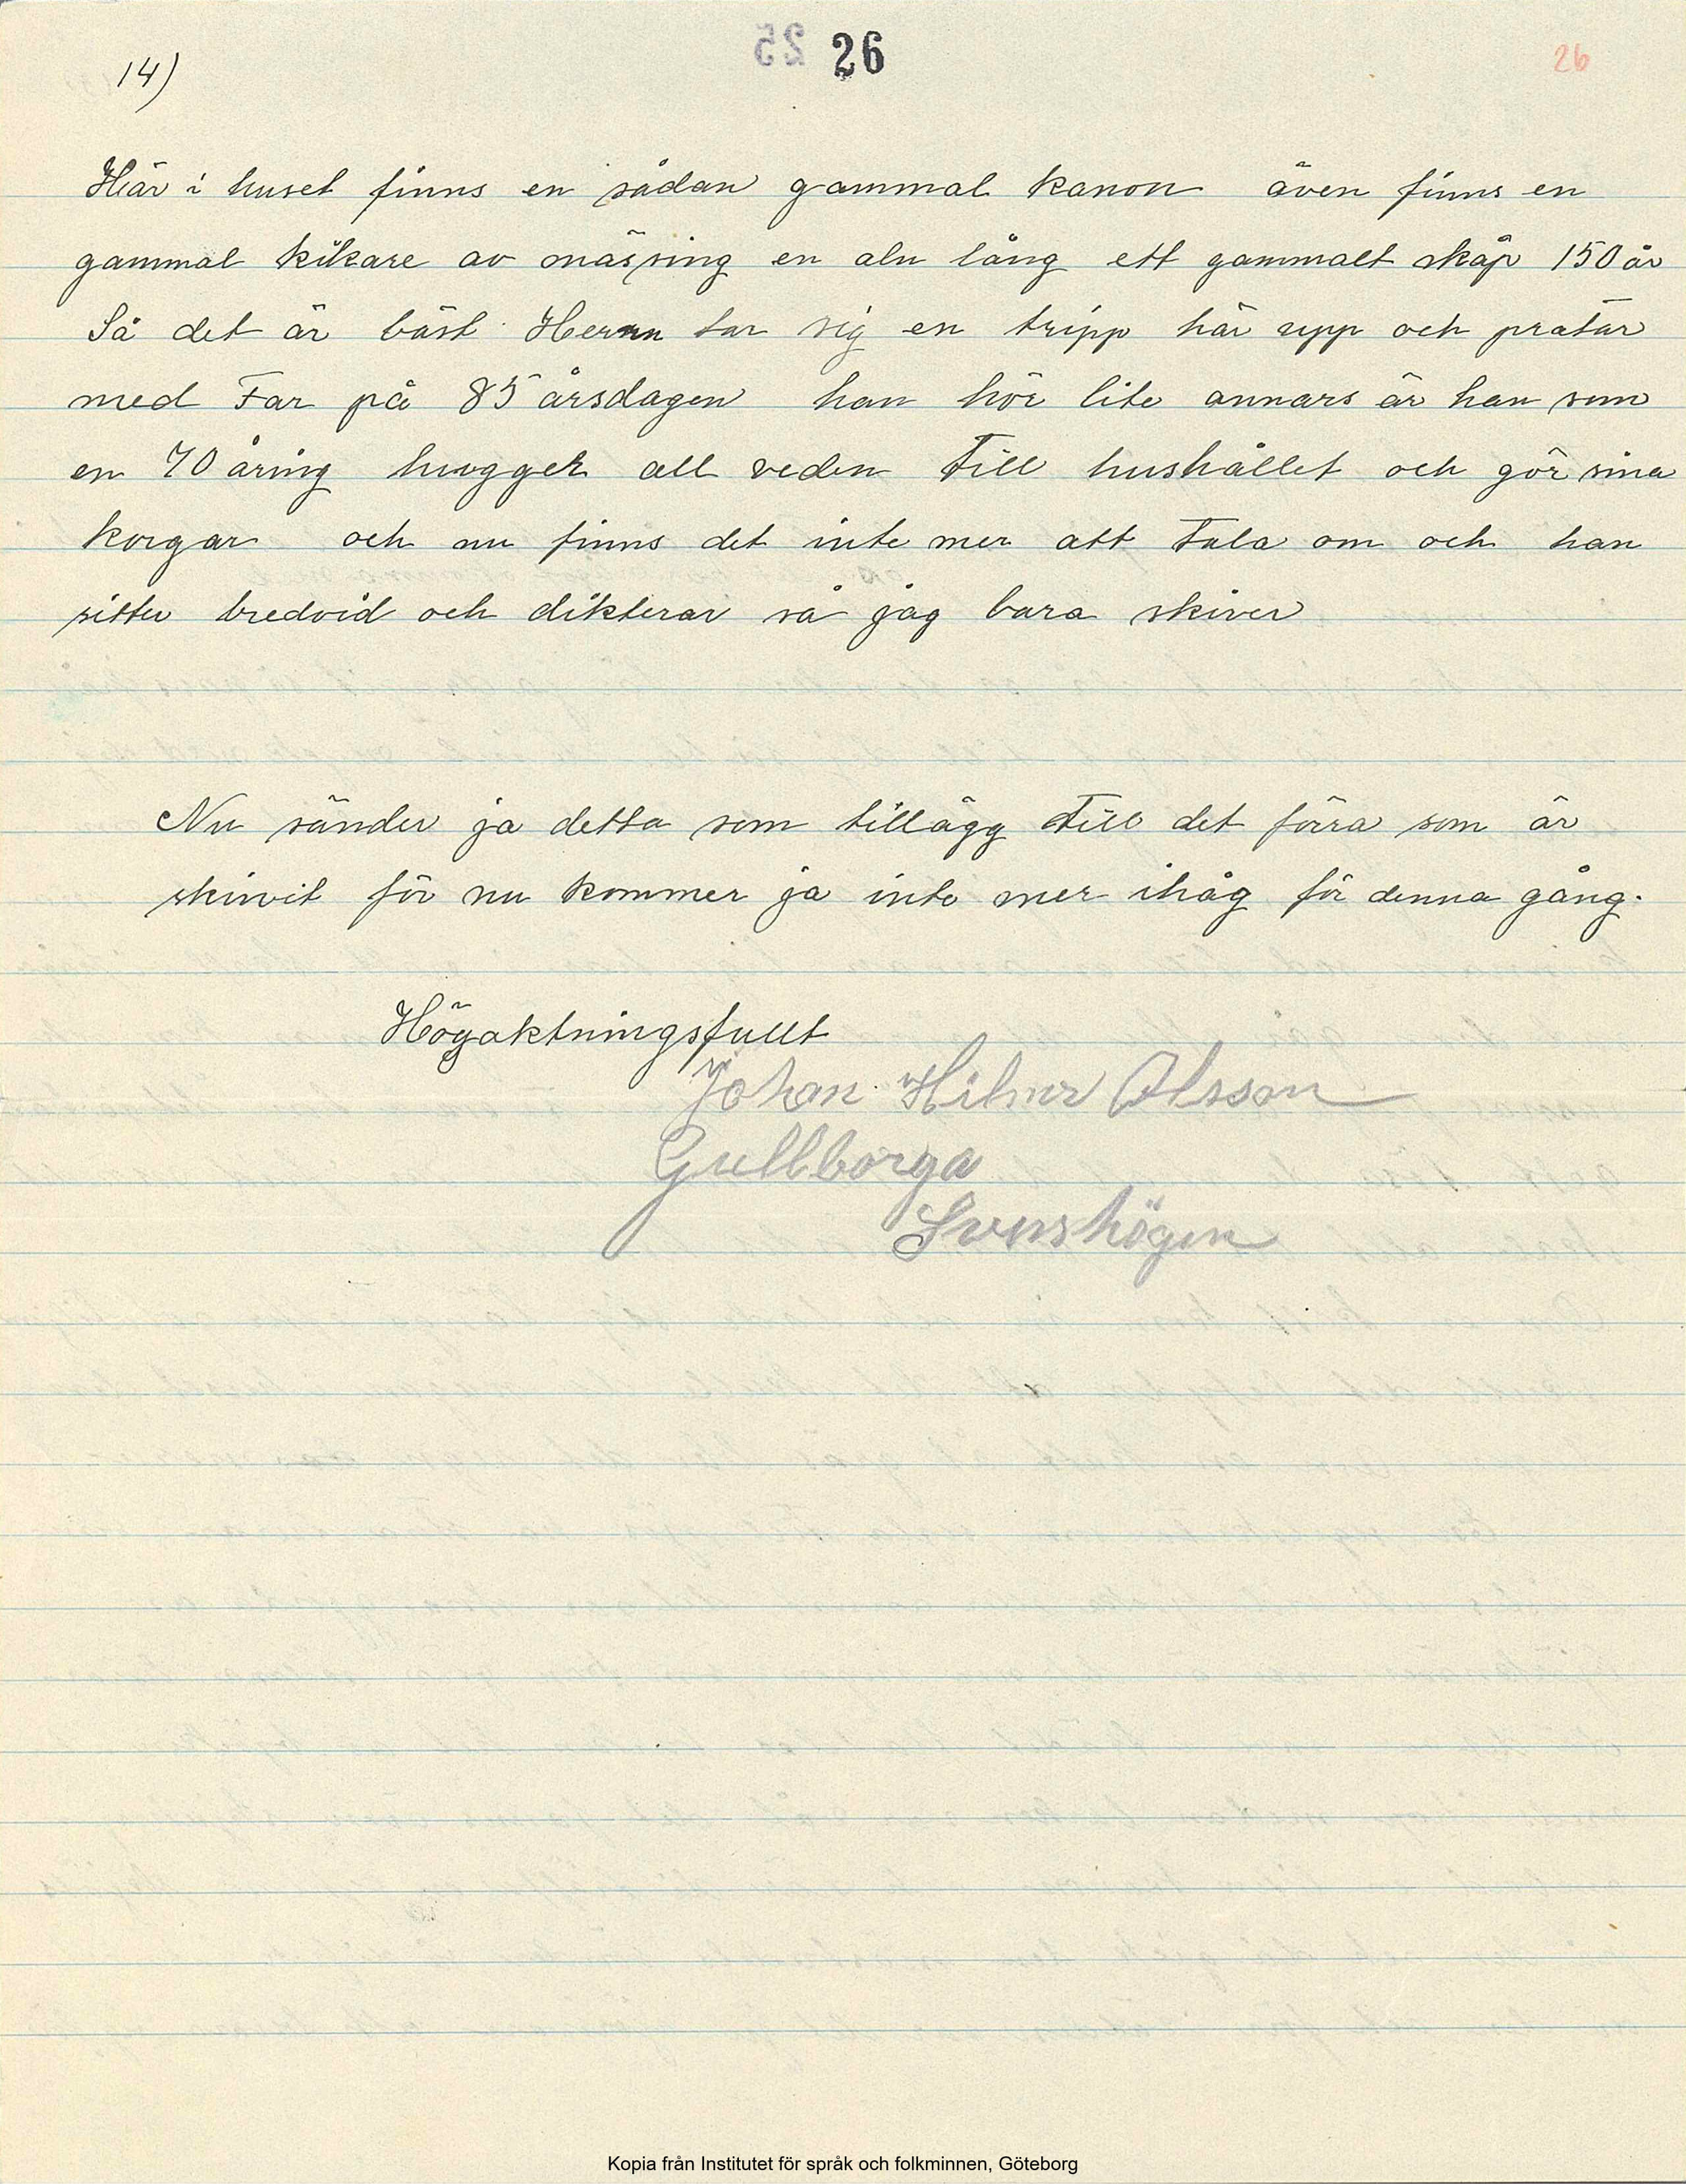 14)
25 26
26
Här i huset finns en sådan gammal kanon även finns en
gammal kikare av mässing en aln lång ett gammalt skåp 150 år
Så det är bäst Herrn tar sig en tripp här upp och pratar
med Far på 85 årsdagen han hör lite annars är han som
en 70 åring hugger all veden till hushållet och gör sina
korgar och nu finns det inte mer att tala om och han
sitter bredvid och dikterar så jag bara skiver
Nu sänder ja detta som tillägg till det förra som är
skivit för nu kommer ja inte mer ihåg för denna gång.
Högaktningsfullt
Johan Hilmer Olsson
Gullborga
Svenshögen
Kopia från Institutet för språk och folkminnen, Göteborg